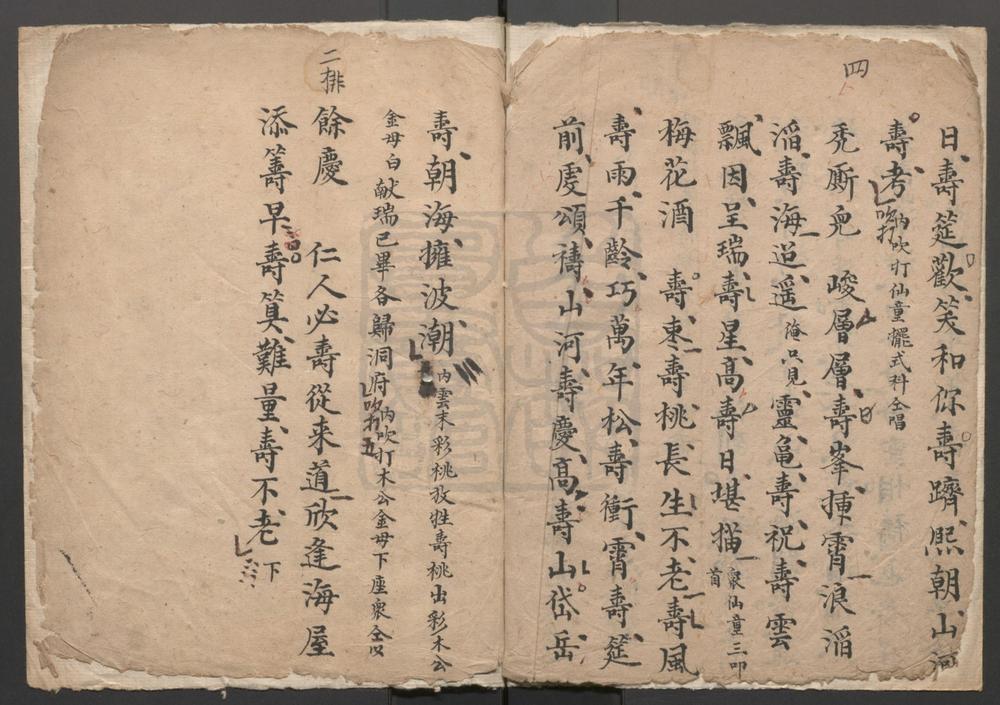 四
日壽筵歡笑和你壽躋熙朝山河
壽考 內吹打仙童擺式科仝唱 吹打
禿厮兒 峻層層壽峯揷霄浪滔
滔壽海迢遥 俺只見靈龜壽祝壽雲
飄因呈瑞壽星高壽日堪描 衆仙童三叩首
梅花酒 壽東壽桃長生不老壽風
壽雨千齡巧萬年松壽衝霄壽筵
前虔頌禱山河壽慶高壽山岱岳
壽朝海擁波潮 內雲末彩桃放牲壽桃出彩木公
金母白献瑞已畢各歸洞府 內吹打木公金母下座衆仝 吹打五
二排
餘慶 仁人必壽從来道欣逢海屋
添籌早壽筭難量壽不老 下